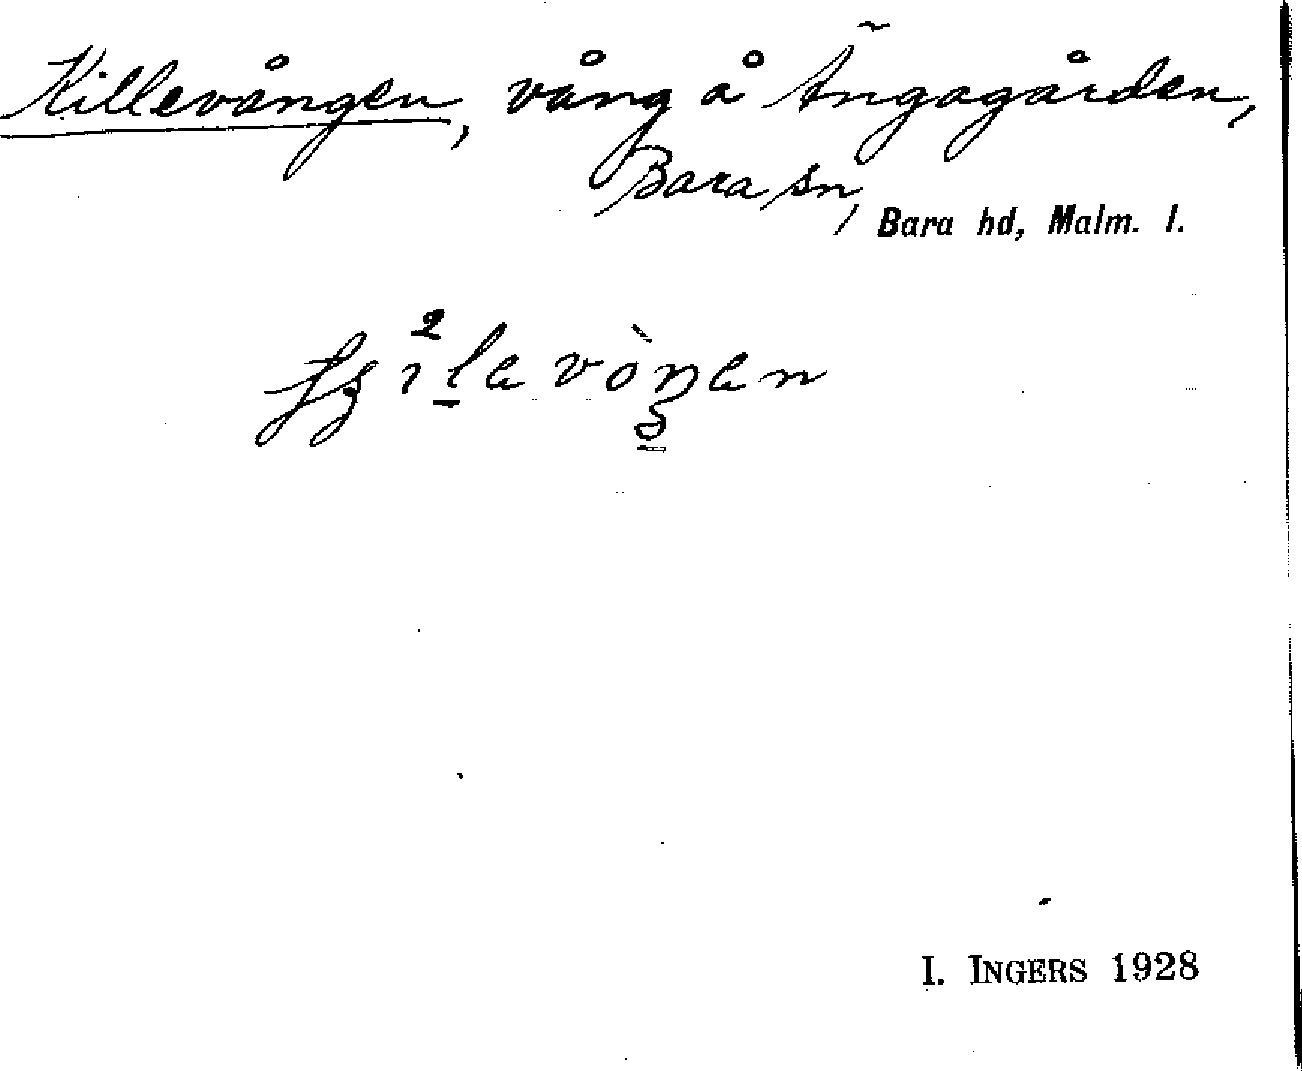 Killevången, vång å Ängagården,
Bara sn,
Bara hd, Malm. l.
I. INGERS 1928